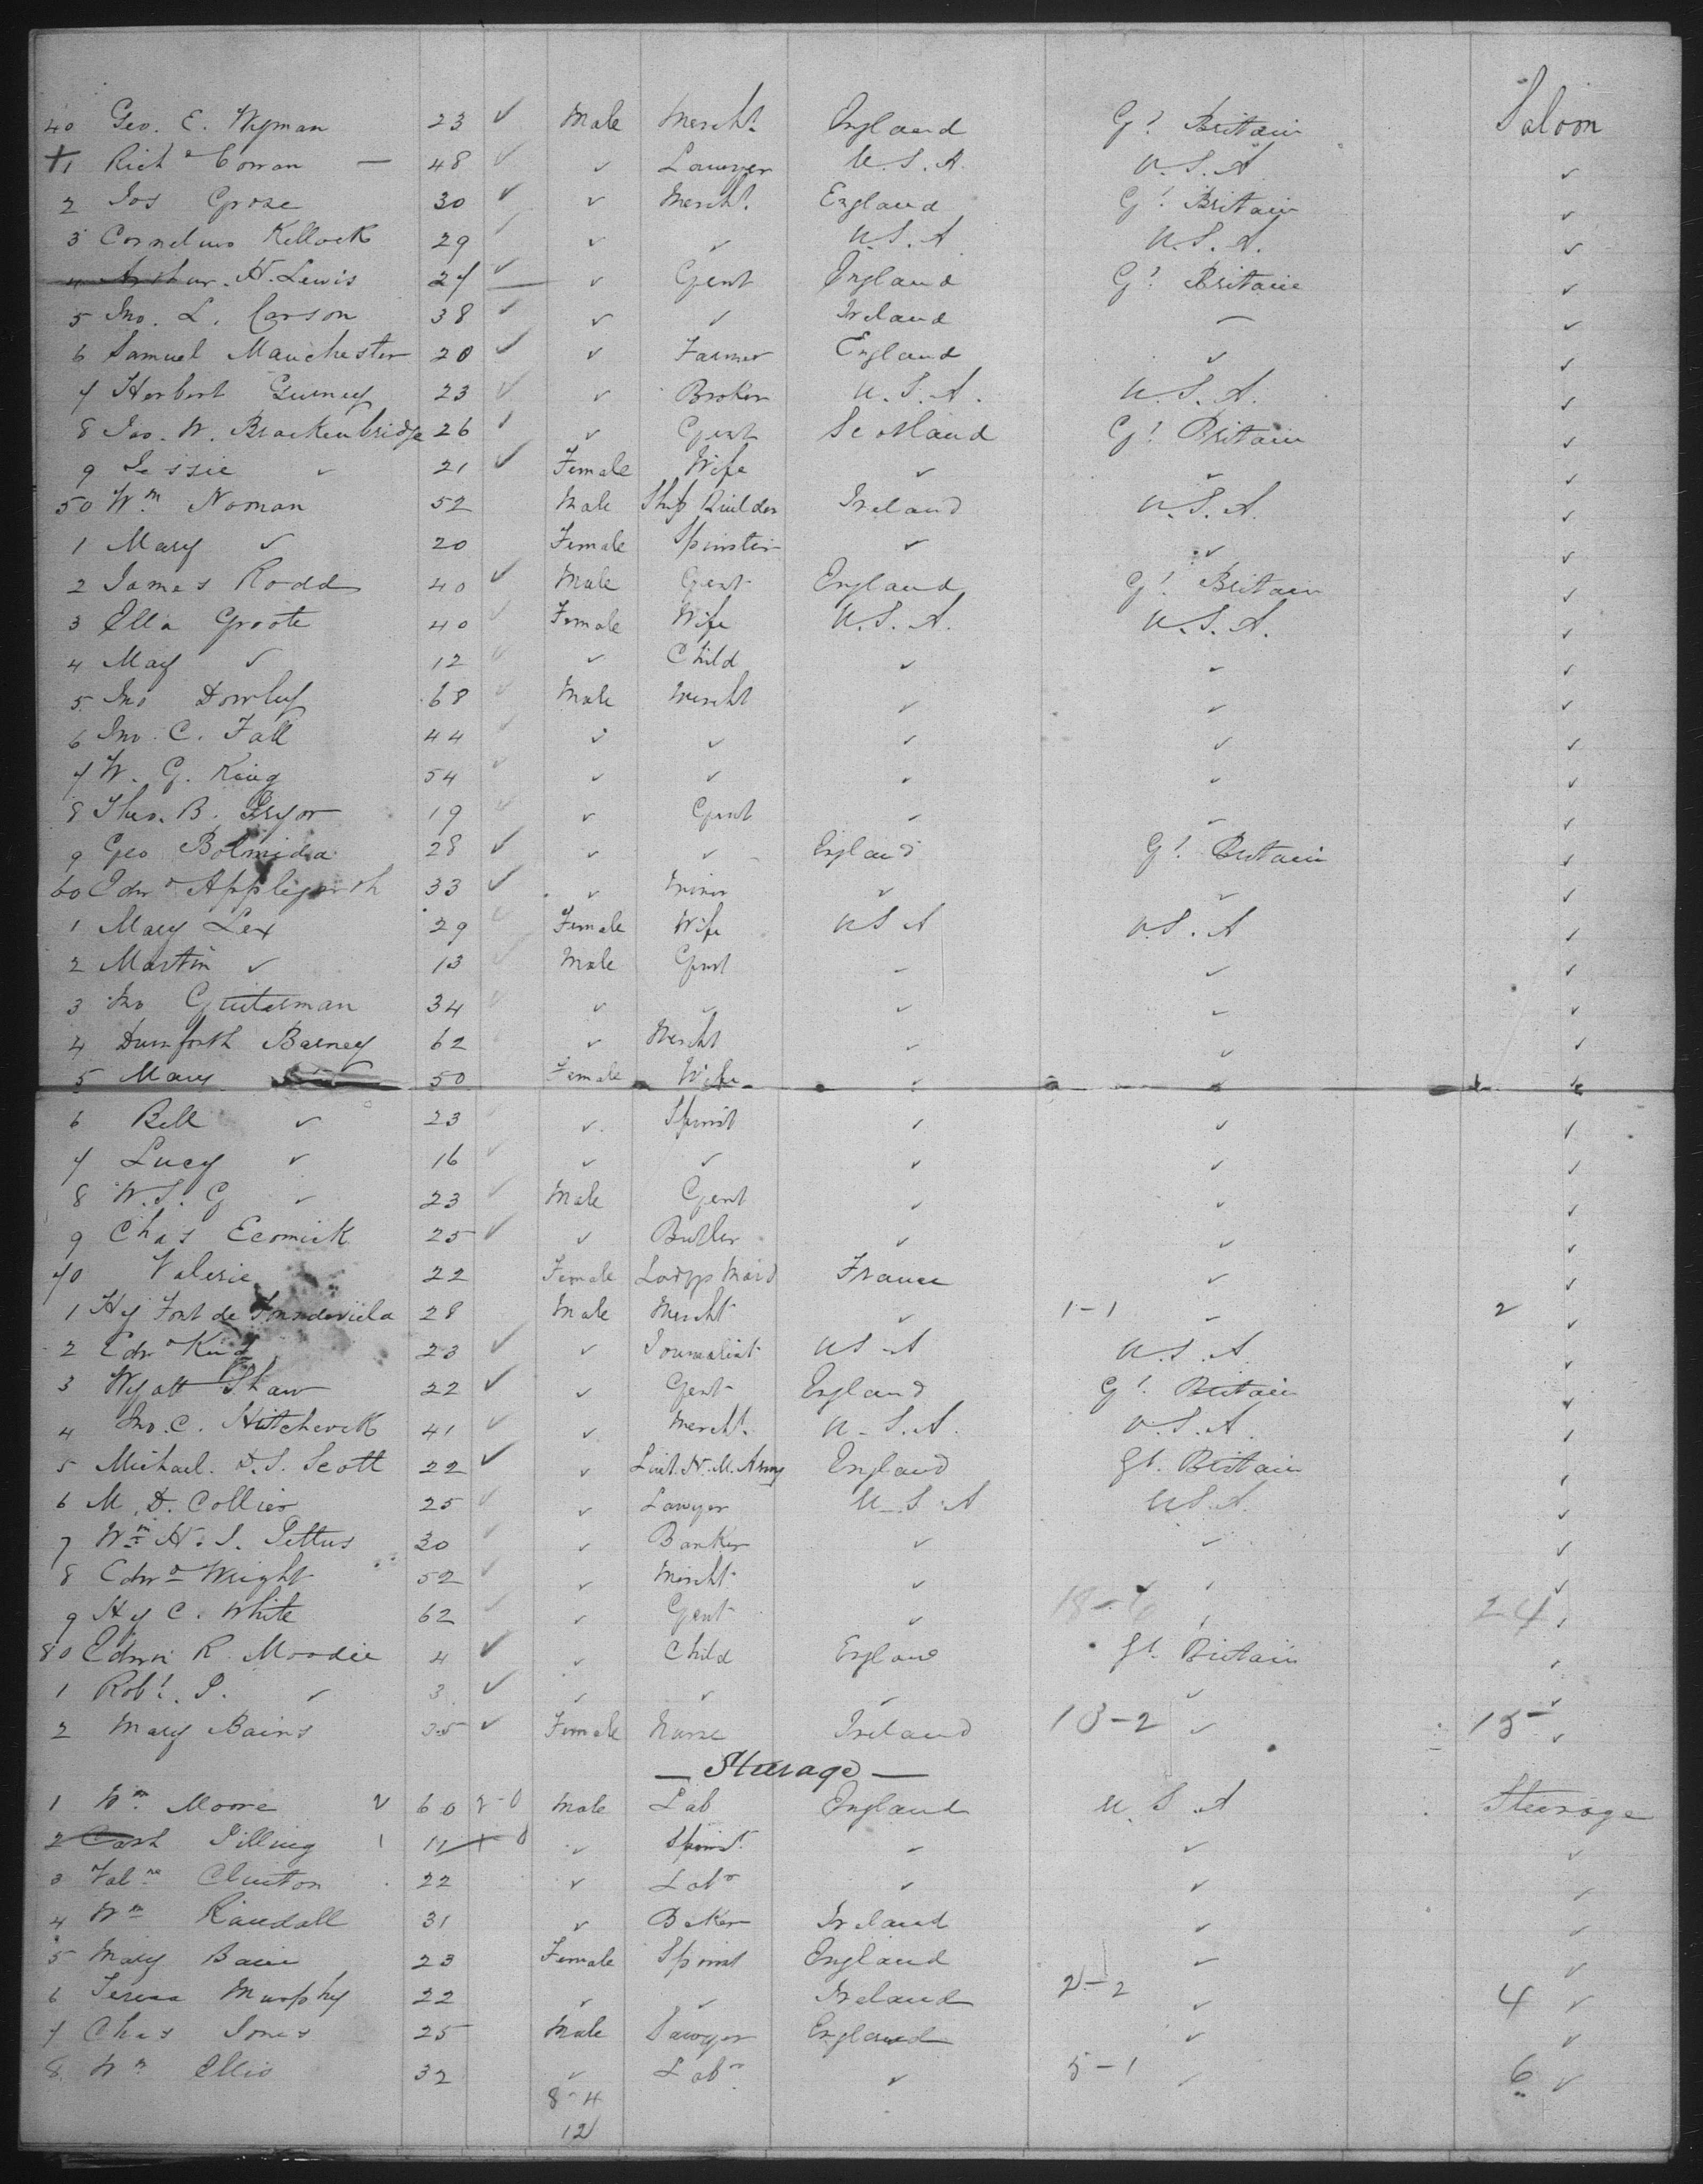 40 Geo. E. Wyman 23 ✓ Male Mercht. England Gt. Britain Saloon
1 Richd Cowan — 48 ✓ ✓ Lawyer U.S.A. U.S.A. ✓
2 Jos Grose 30 ✓ ✓ Mercht. England Gt. Britain ✓
3 Cornelius Kellock 29 ✓ ✓ ✓ U.S.A. U.S.A. ✓
4 Arthur. H. Lewis 27 ✓ ✓ Gent England Gt. Britain ✓
5 Jno. L. Carson 38 ✓ ✓ ✓ Ireland — ✓
6 Samuel Manchester 20 ✓ ✓ Farmer England ✓ ✓
7 Herbert Gurney 23 ✓ ✓ Broker U.S.A. U.S.A. ✓
8 Jas. W. Brackenbridge 26 ✓ ✓ Gent Scotland Gt. Britain ✓
9 Jessie ✓ 21 ✓ Female Wife ✓ ✓ ✓
50 Wm. Noman 52 Male Ship Builder Ireland U.S.A. ✓
1 Mary ✓ 20 Female Spinster ✓ ✓ ✓
2 James Rodd 40 ✓ Male Gent England Gt. Britain ✓
3 Ella Groote 40 ✓ Female Wife U.S.A. U.S.A. ✓
4 May ✓ 12 ✓ ✓ Child ✓ ✓ ✓
5 Jno Dowley 68 ✓ Male Mercht ✓ ✓ ✓
6 Jno. C. Fall 44 ✓ ✓ ✓ ✓ ✓ ✓
7 W. G. King 54 ✓ ✓ ✓ ✓ ✓ ✓
8 Theo. B. Pryor 19 ✓ ✓ Gent ✓ ✓ ✓
9 Geo Bolmida 28 ✓ ✓ ✓ England Gt. Britain ✓
60 Edwd Applegarth 33 ✓ ✓ Miner ✓ ✓ ✓
1 Mary Lex 29 ✓ Female Wife USA U.S.A ✓
2 Martin ✓ 13 ✓ Male Gent ✓ ✓ ✓
3 Jno Guiterman 34 ✓ ✓ ✓ ✓ ✓ ✓
4 Danforth Barney 62 ✓ Mercht ✓ ✓ ✓
5 Mary 50 Female Wife ✓ ✓ ✓
6 Bell ✓ 23 ✓ ✓ Spinst ✓ ✓ ✓
7 Lucy ✓ 16 ✓ ✓ ✓ ✓ ✓ ✓
8 W.S. G ✓ 23 ✓ Male Gent ✓ ✓ ✓
9 Chas Ecomick 25 ✓ ✓ Butler ✓ ✓ ✓
70 Valerie 22 Female Ladys Maid France ✓ ✓
1 Hy Font de 28 Male Mercht ✓ 1-1 ✓ 2 ✓
2 Edwd King 23 ✓ ✓ Journalist US.A U.S.A. ✓
3 Wyatt Shaw 22 ✓ ✓ Gent England Gt. Britain ✓
4 Jno. C. Hitchcock 41 ✓ ✓ Mercht. U.S.A. U.S.A. ✓
5 Michael. D.S. Scott 22 ✓ ✓ Liut. H.M. Army England Gt. Britain ✓
6 M. D. Collier 25 ✓ ✓ Lawyer U.S.A USA. ✓
7 Wm H. J. Pettus 30 ✓ ✓ Banker ✓ ✓ ✓
8 Edwd Wright 52 ✓ ✓ Mercht ✓ ✓ ✓
9 Hy C. White 62 ✓ ✓ Gent ✓ 18-6 ✓ 24 ✓
80 Edwin R. Moodie 4 ✓ ✓ Child England Gt. Britain ✓
1 Robt. J. ✓ 3 ✓ ✓ ✓ ✓ ✓ ✓
2 Mary Bains 35 ✓ Female Nurse Ireland 13-2 ✓ 15 ✓
— Steerage —
1 Wm. Moore 2 60 2-0 Male Lab England U.S.A Steerage
2 Pilling 1 ✓ Spinst. ✓ ✓ ✓
3 Clinton 22 ✓ Labr ✓ ✓ ✓
4 Wm Randall 31 ✓ Baker Ireland ✓ ✓
5 Mary Bain 23 Female Spinst England ✓ ✓
6 Teresa Murphy 22 ✓ ✓ Ireland 2-2 ✓ 4 ✓
7 Chas Jones 25 Male Sawyer England ✓ ✓
8 Wm Ellis 32 ✓ Labr. ✓ 5-1 ✓ 6 ✓
8-4
12